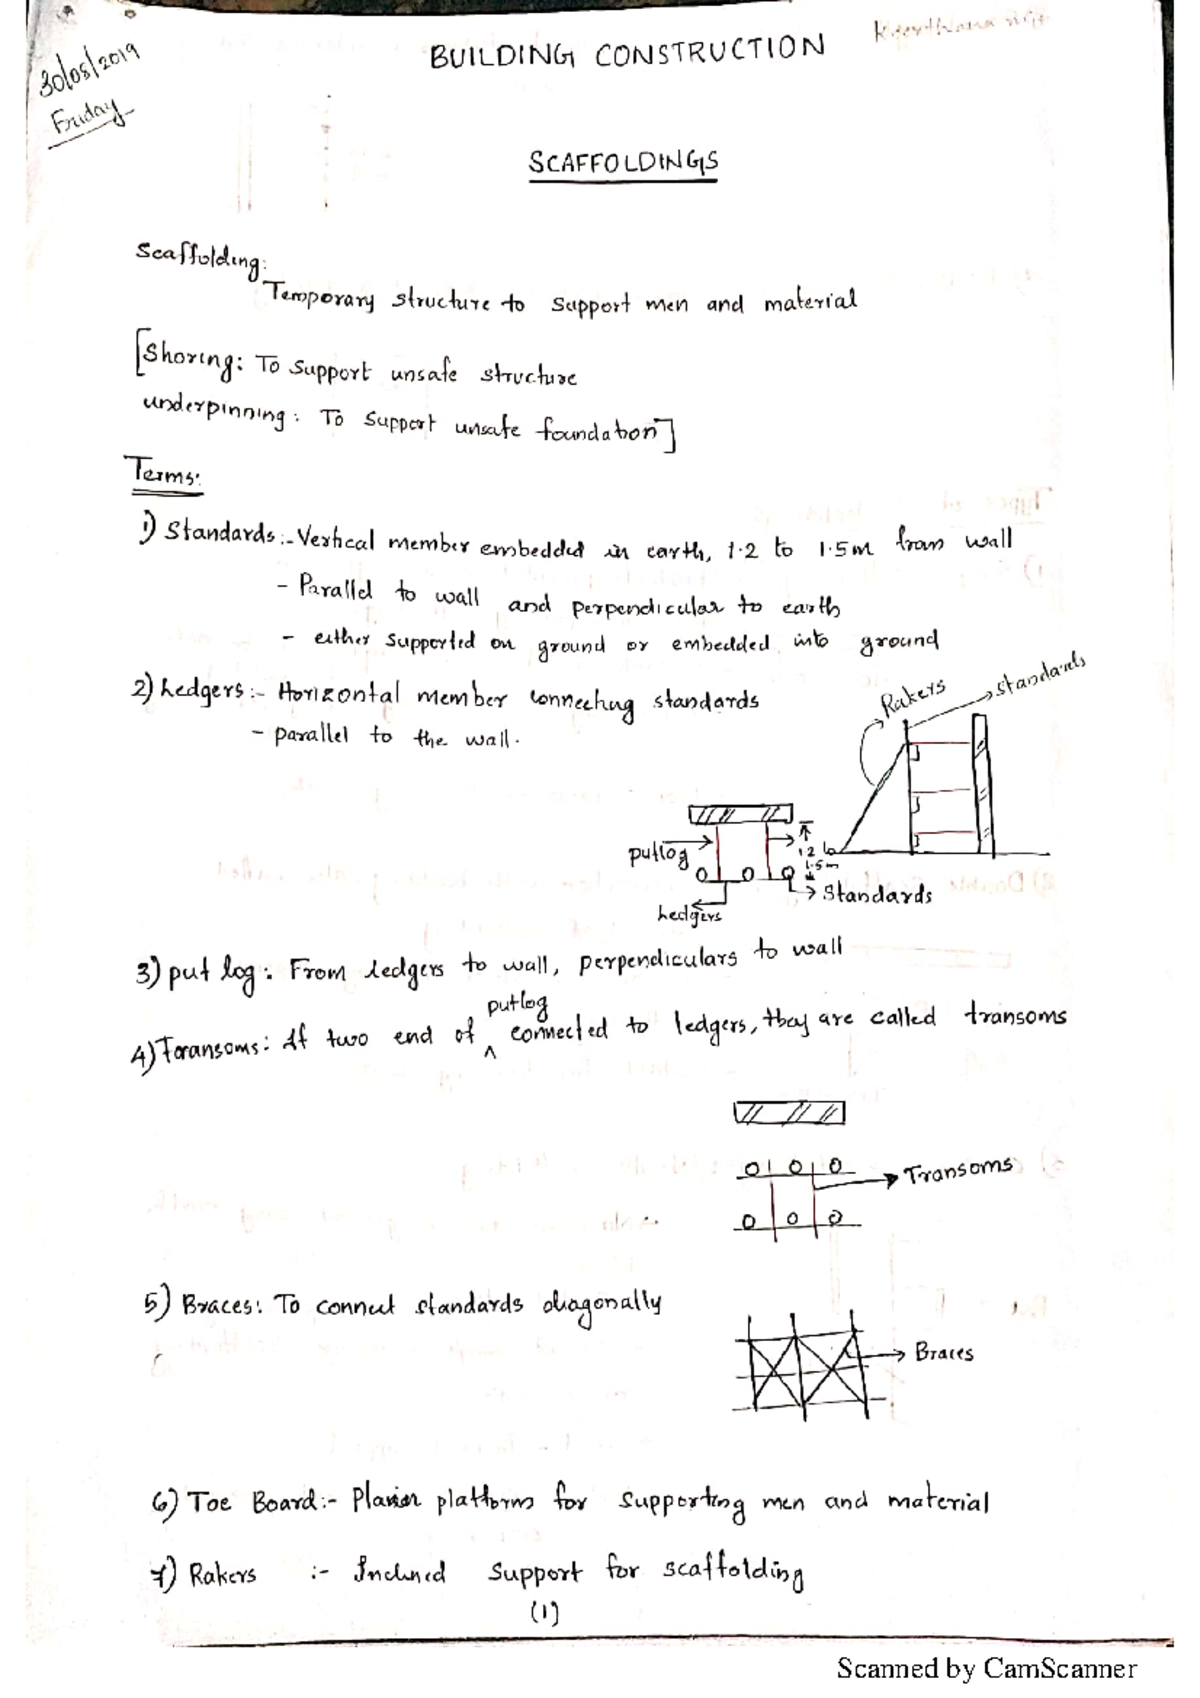 30/08/2019
Friday
BUILDING CONSTRUCTION
SCAFFOLDINGS
Scaffolding:
Temporary structure to support men and material
[Shoring: To support unsafe structure
underpinning: To support unsafe foundation]
Terms:
1) Standards:- Vertical member embedded in earth, 1.2 to 1.5m from wall
- Parallel to wall and perpendicular to earth
- either supported on ground or embedded into ground
2) Ledgers:- Horizontal member connecting standards
- parallel to the wall.
Rakers
standards
putlog
1.2 to
1.5m
Standards
Ledgers
3) put log: From Ledgers to wall, perpendiculars to wall
putlog
4) Transoms: If two end of ^ connected to ledgers, they are called transoms
Transoms
5) Braces: To connect standards diagonally
Braces
6) Toe Board:- platforms for supporting men and material
7) Rakers :- Inclined support for scaffolding
(1)
Scanned by CamScanner